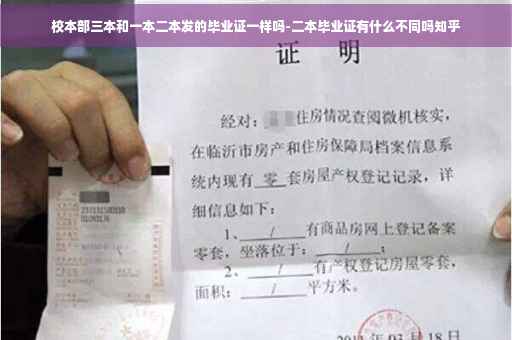 校本部三本和一本二本发的毕业证一样吗-二本毕业证有什么不同吗知乎
证 明
经对: 住房情况查阅微机核实,
在临沂市房产和住房保障局档案信息系
统内现有 零 套房屋产权登记记录, 详
细信息如下:
1、 / 有商品房网上登记备案
零套, 坐落位于: / ;
2、 / 有产权登记房屋零套,
面积: / 平方米。
03 月 18 日